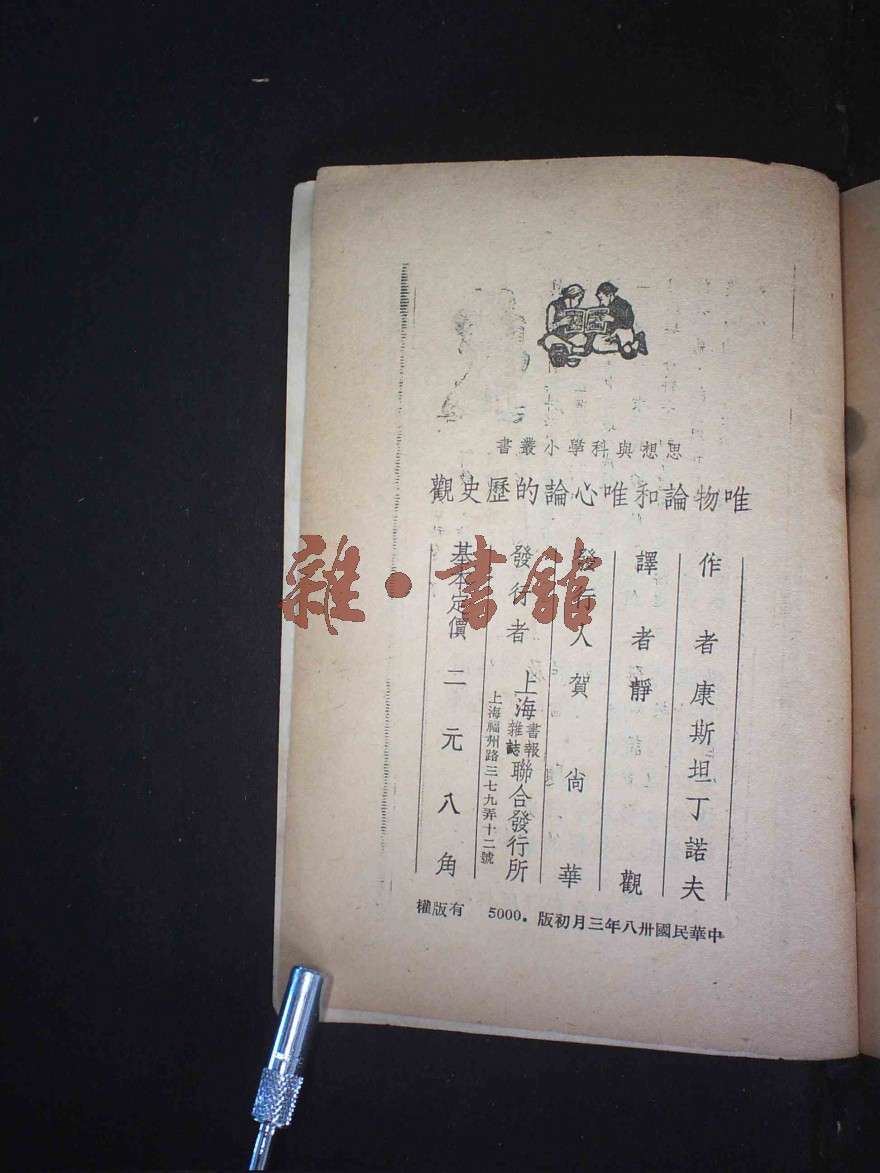 思想與科學小叢書
唯物論和唯心論的歷史觀
作者 康斯坦丁諾夫
譯者 靜觀
發行人 賀尚華
發行者 上海書報雜誌聯合發行所
上海福州路三七九弄十二號
基本定價 二元八角
中華民國卅八年三月初版.5000 有版權
雜·書館